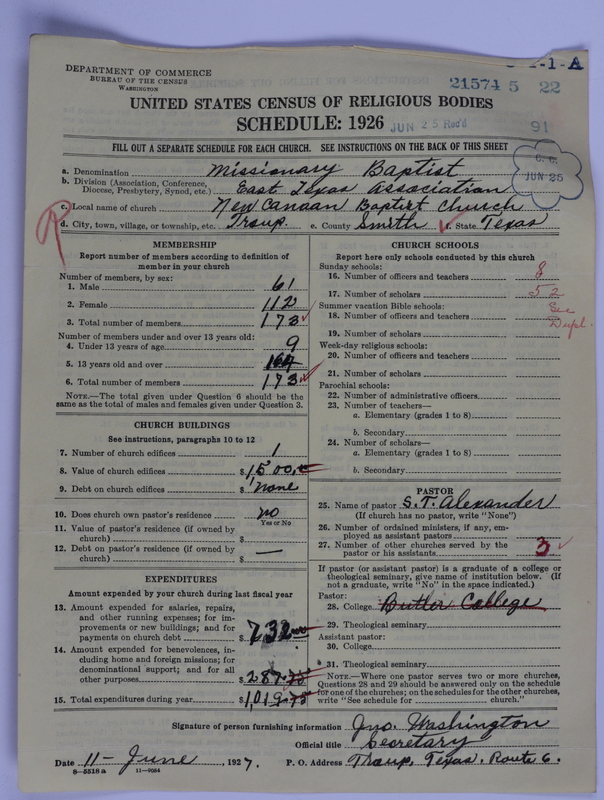 1-A
DEPARTMENT OF COMMERCE
BUREAU OF THE CENSUS
WASHINGTON
21574 5 22
UNITED STATES CENSUS OF RELIGIOUS BODIES
SCHEDULE: 1926
JUN 25 Rec'd
91
FILL OUT A SEPARATE SCHEDULE FOR EACH CHURCH. SEE INSTRUCTIONS ON THE BACK OF THIS SHEET
JUN 25
a. Denomination Missionary Baptist
b. Division (Association, Conference, Diocese, Presbytery, Synod, etc.) East Texas Association
c. Local name of church New Canaan Baptist Church
d. City, town, village, or township, etc. Troup. e. County Smith f. State Texas
R
MEMBERSHIP
Report number of members according to definition of
member in your church
Number of members, by sex:
1. Male 61
2. Female 112
3. Total number of members 173
Number of members under and over 13 years old:
4. Under 13 years of age 9
5. 13 years old and over 164
6. Total number of members 173
NOTE.—The total given under Question 6 should be the
same as the total of males and females given under Question 3.
CHURCH BUILDINGS
See instructions, paragraphs 10 to 12
7. Number of church edifices 1
8. Value of church edifices $1,500.00
9. Debt on church edifices $None
10. Does church own pastor's residence? no
Yes or No
11. Value of pastor's residence (if owned by
church) $
12. Debt on pastor's residence (if owned by
church) $ —
EXPENDITURES
Amount expended by your church during last fiscal year
13. Amount expended for salaries, repairs,
and other running expenses; for im-
provements or new buildings; and for
payments on church debt $732.00
14. Amount expended for benevolences, in-
cluding home and foreign missions; for
denominational support; and for all
other purposes $287.75
15. Total expenditures during year $1,019.75
CHURCH SCHOOLS
Report here only schools conducted by this church
Sunday schools:
16. Number of officers and teachers 8
17. Number of scholars 52
Summer vacation Bible schools:
18. Number of officers and teachers
See
Dupl.
19. Number of scholars
Week-day religious schools:
20. Number of officers and teachers
21. Number of scholars
Parochial schools:
22. Number of administrative officers
23. Number of teachers—
a. Elementary (grades 1 to 8)
b. Secondary
24. Number of scholars—
a. Elementary (grades 1 to 8)
b. Secondary
PASTOR
25. Name of pastor S. T. Alexander
(If church has no pastor, write "None")
26. Number of ordained ministers, if any, em-
ployed as assistant pastors
27. Number of other churches served by the
pastor or his assistants 3
If pastor (or assistant pastor) is a graduate of a college or
theological seminary, give name of institution below. (If
not a graduate, write "No" in the space indicated.)
Pastor:
28. College Butler College
29. Theological seminary
Assistant pastor:
30. College
31. Theological seminary
NOTE.—Where one pastor serves two or more churches,
Questions 28 and 29 should be answered only on the schedule
for one of the churches; on the schedules for the other churches,
write "See schedule for church."
Signature of person furnishing information Jno. Washington
Official title Secretary
Date 11 - June, 1927. P. O. Address Troup, Texas, Route 6.
8—5518 a 11—9084